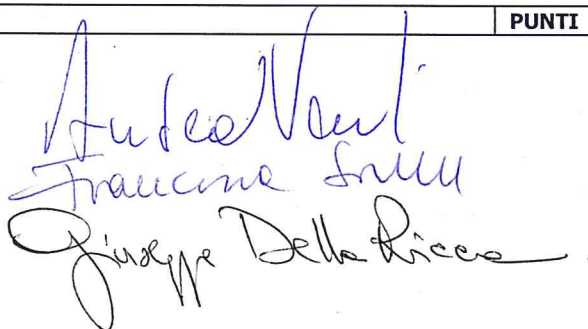 PUNTI
Andrea
Francesca
Giuseppe Della Ricca